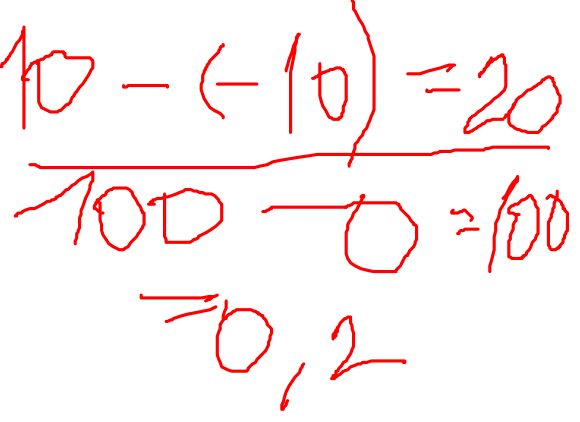 10 - (-10) = 20
100 - 0 = 100
= 0,2